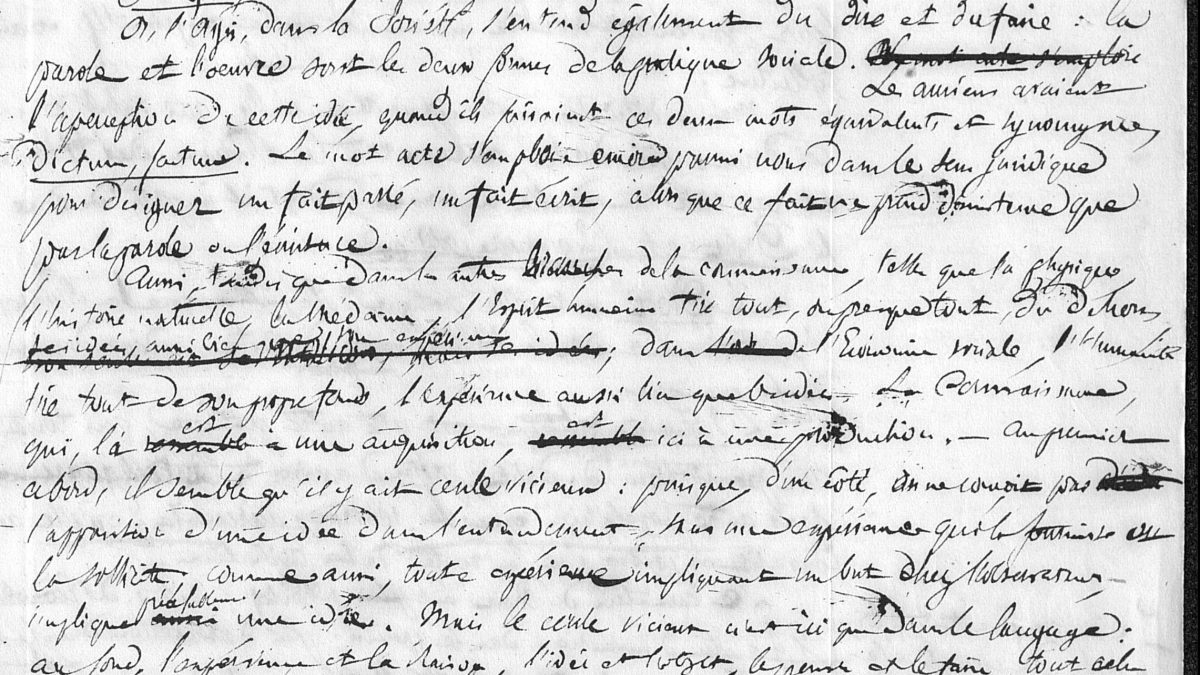 Or, l'Agir, dans la Société, s'entend également du dire et du faire : la
parole et l'oeuvre sont les deux formes de la pratique sociale.
Les anciens avaient
l'aperception de cette idée, quand ils faisaient ces deux mots équivalents et synonymes,
Dictum, factum. Le mot acte s'emploie encore parmi nous dans le sens juridique
pour désigner un fait parlé, un fait écrit, alors que ce fait ne prend d'existence que
par la parole ou l'écriture.
Aussi, tandis que dans les autres branches de la connaissance, telles que la physique,
l'histoire naturelle, la médecine, l'Esprit humain tire tout, ou presque tout, du dehors,
ses idées, aussi bien que son expérience ; dans l'Economie sociale, l'Humanité
tire tout de son propre fonds, l'expérience aussi bien que l'idée. La Connaissance,
qui, là est une acquisition, est ici une production. — Au premier
abord, il semble qu'il y ait cercle vicieux : puisque, d'un côté, on ne conçoit pas
l'apparition d'une idée dans l'entendement, sans une expérience qui la fournisse ou
la sollicite, comme aussi, toute expérience impliquant un but chez l'observateur
implique préalablement une idée. Mais le cercle vicieux n'est ici que dans le langage :
au fond, l'expérience et la raison, l'idée et l'objet, le penser et le faire, tout cela